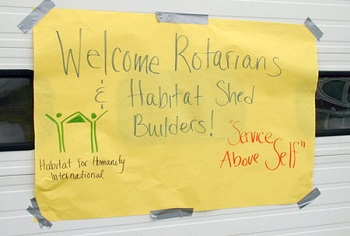 Welcome Rotarians
& Habitat Shed
Builders!
Habitat for Humanity
International
"Service
Above Self"